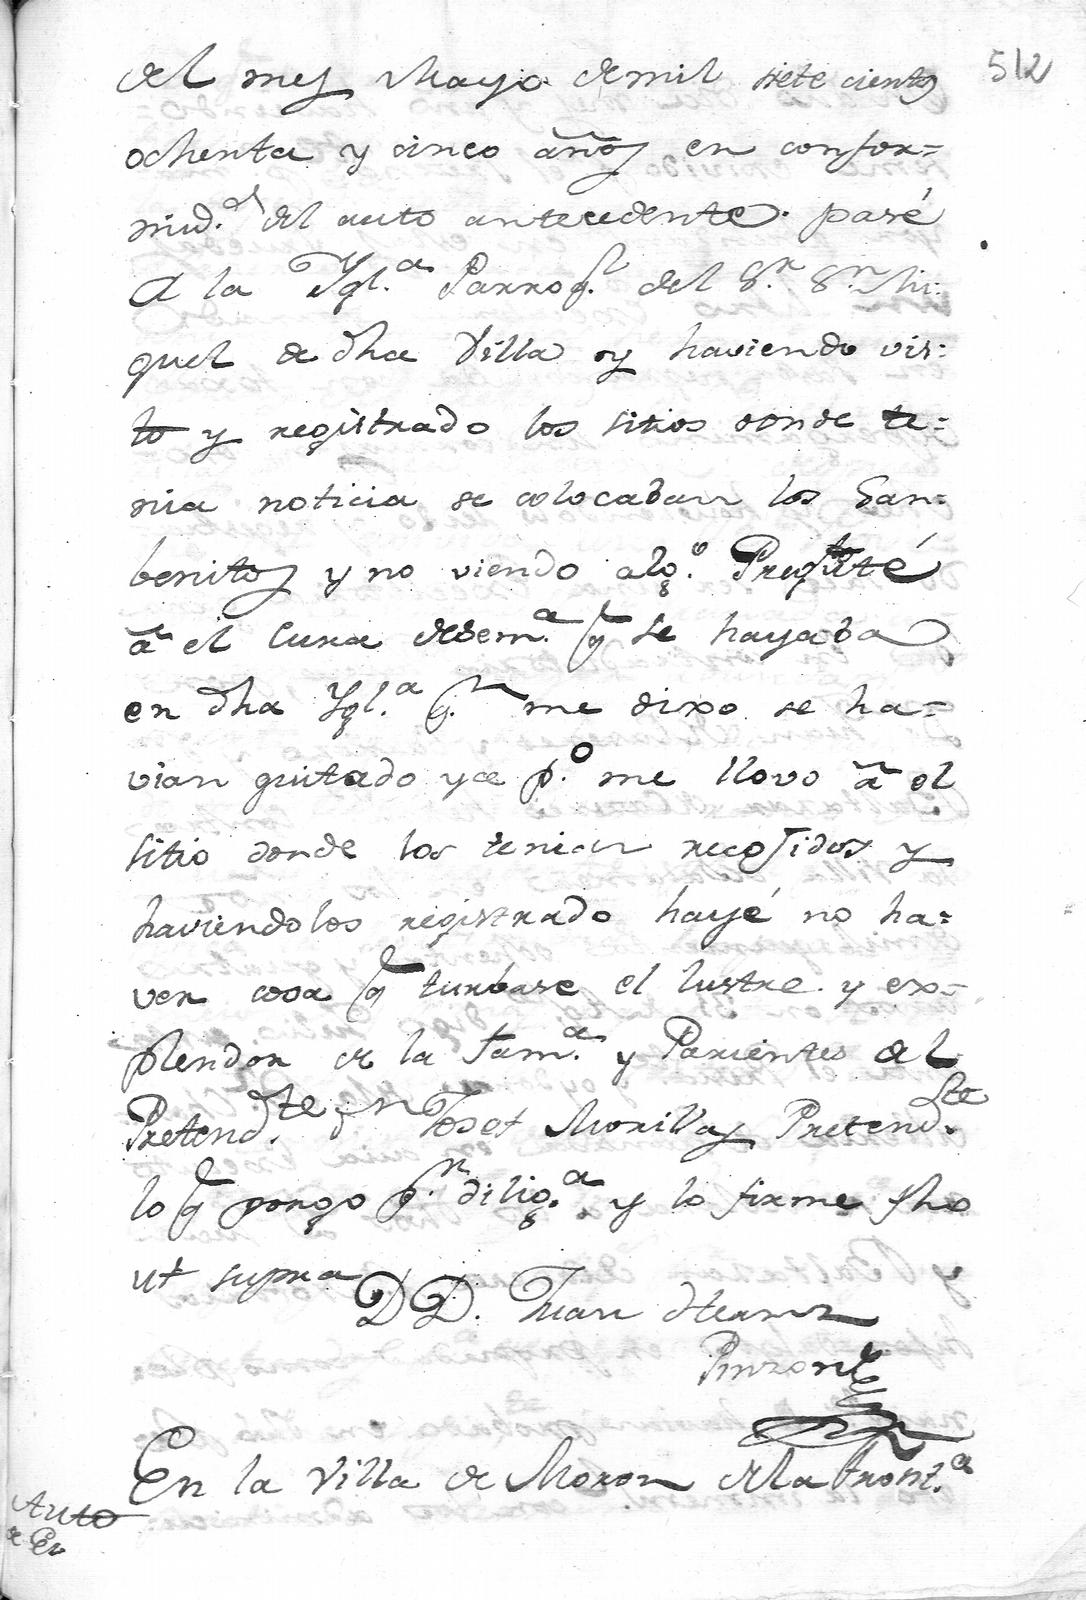 512
del mes Mayo de mil siete cientos
ochenta y cinco años en confor=
mid.ad del auto antecedente pasé
A la Ygl.a Parroq.l del S.r S.n Mi=
guel de dha Villa y haviendo vis=
to y registrado los sitios donde te=
nia noticia se colocaban los San=
benitos y no viendo alg.o Pregunté
â el Cura desem.a q se hayaba
en dha Ygl.a q.n me dixo se ha=
vian quitado y de p.o me llevo â el
sitio donde los tenian recogidos y
haviendolos registrado hayé no ha=
ver cosa q turbase el lustre y ex=
plendor de la fam.a y Parientes del
Pretend.te Josef Morillas Pretend.te
lo q pongo p.r dilig.a y lo firme fho
ut supra
D D. Juan
Pinzon
En la Villa de Moron dela front.a
Auto
de